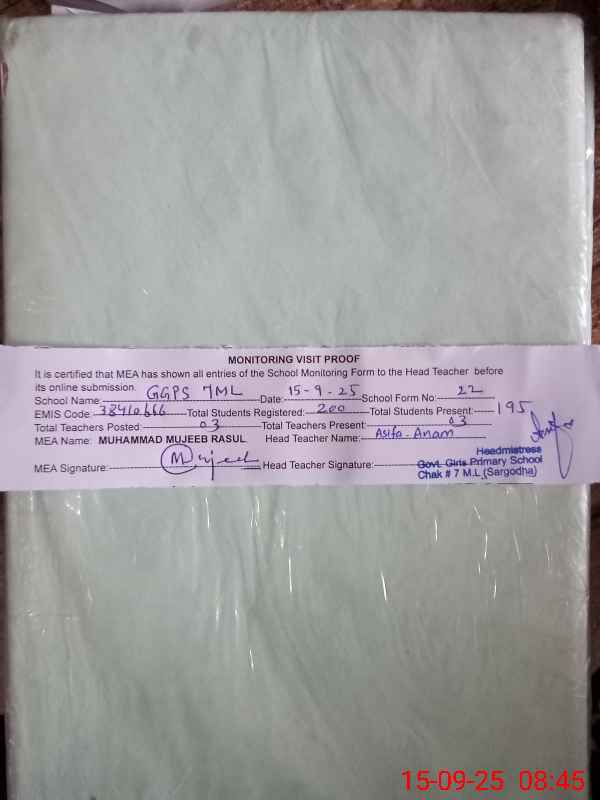 MONITORING VISIT PROOF
It is certified that MEA has shown all entries of the School Monitoring Form to the Head Teacher before
its online submission.
School Name: GGPS 7ML Date: 15-9-25 School Form No: 22
EMIS Code: 38410666 Total Students Registered: 200 Total Students Present: 195
Total Teachers Posted: 03 Total Teachers Present: 03
MEA Name: MUHAMMAD MUJEEB RASUL Head Teacher Name: Asifa Anam
MEA Signature: Mujeeb Head Teacher Signature:
Headmistress
Govt. Girls Primary School
Chak # 7 M.L (Sargodha)
15-09-25 08:45